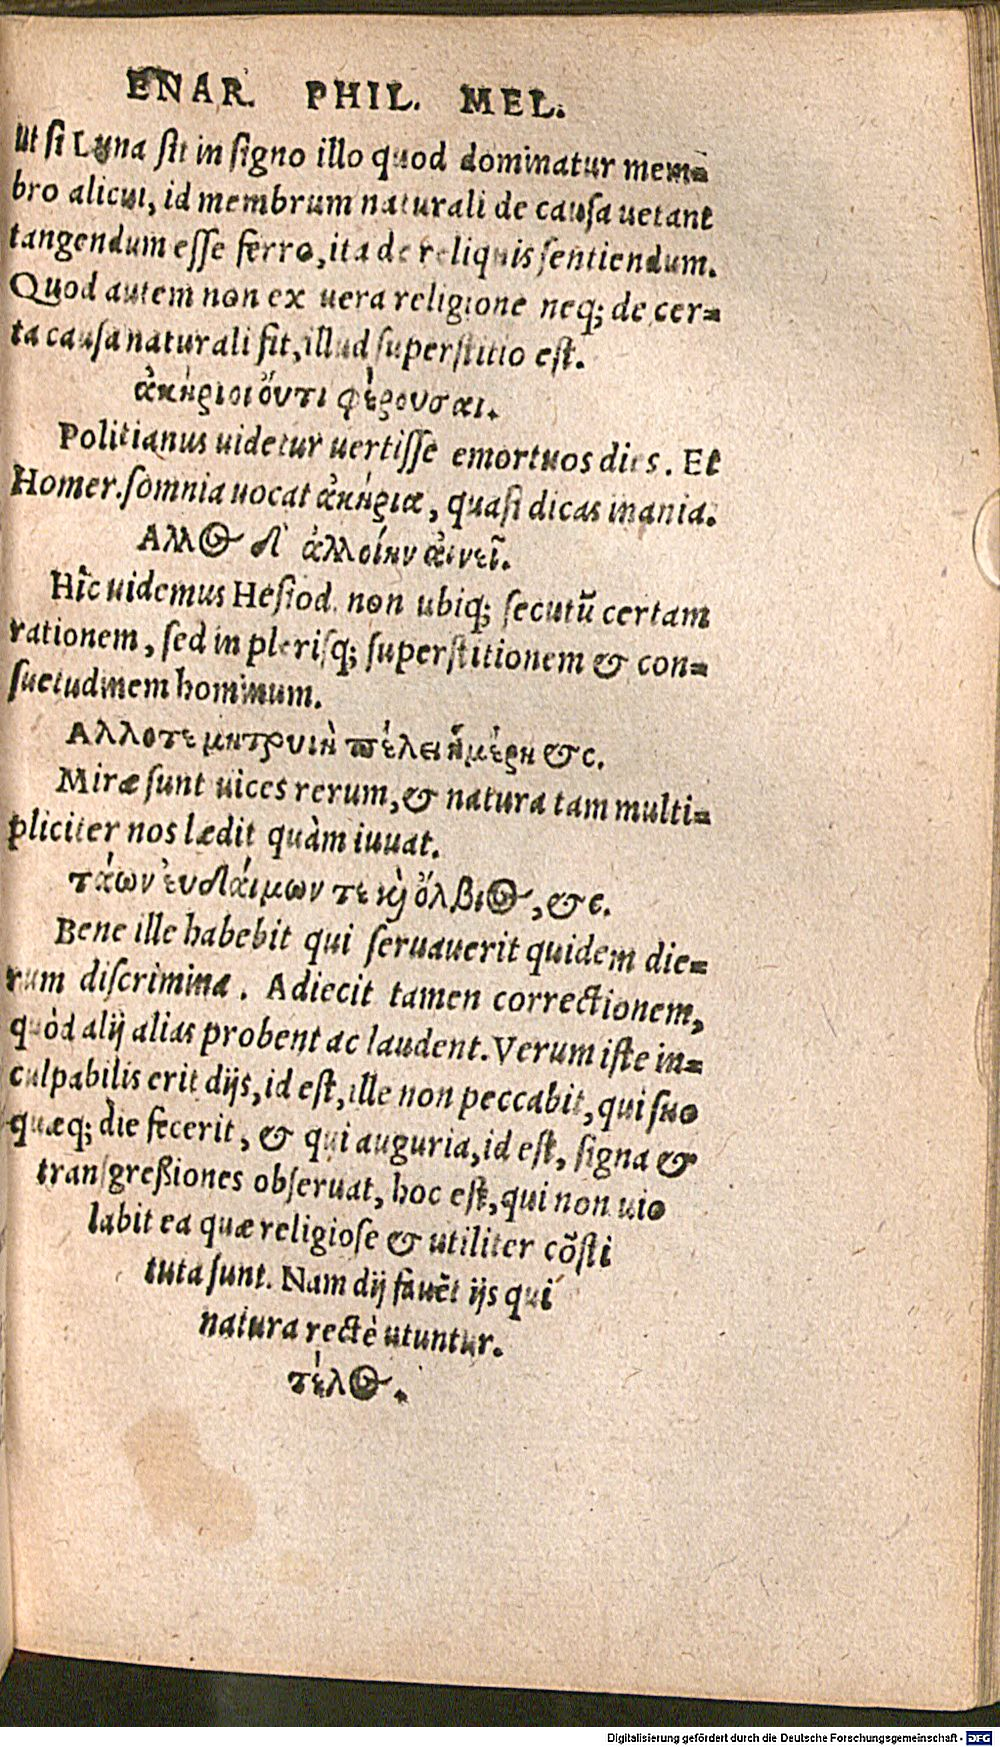 ENAR. PHIL. MEL.
ut ſi Luna ſit in ſigno illo quod dominatur mem=
bro alicui, id membrum naturali de cauſa uetant
tangendum eſſe ferro, ita de reliquis ſentiendum.
Quod autem non ex uera religione neq; de cer=
ta cauſa naturali fit, illud ſuperſtitio eſt.
ἀκήριοι ὄυτι φέρουσαι.
Politianus uidetur uertiſſe emortuos dies. Et
Homer. ſomnia uocat ἀκήρια, quaſi dicas inania.
Αλλος δ' ἀλλοίην ἀινεῖ.
Hîc uidemus Heſiod. non ubiq; ſecutũ certam
rationem, ſed in pleriſq; ſuperſtitionem & con=
ſuetudinem hominum.
Αλλοτε μητρυιὴ πέλει ἡμέρη &c.
Miræ ſunt uices rerum, & natura tam multi=
pliciter nos lædit quàm iuuat.
τάων ἐυδαίμων τε καὶ ὄλβιος, &c.
Bene ille habebit qui ſeruauerit quidem die=
rum diſcrimina. Adiecit tamen correctionem,
quòd alij alias probent ac laudent. Verum iſte in=
culpabilis erit dijs, id eſt, ille non peccabit, qui ſuo
quæq; die fecerit, & qui auguria, id eſt, ſigna &
tranſgreßiones obſeruat, hoc eſt, qui non uio
labit ea quæ religioſe & utiliter cõſti
tuta ſunt. Nam dij fauẽt ijs qui
natura rectè utuntur.
τέλος.
Digitalisierung gefördert durch die Deutsche Forschungsgemeinschaft - DFG